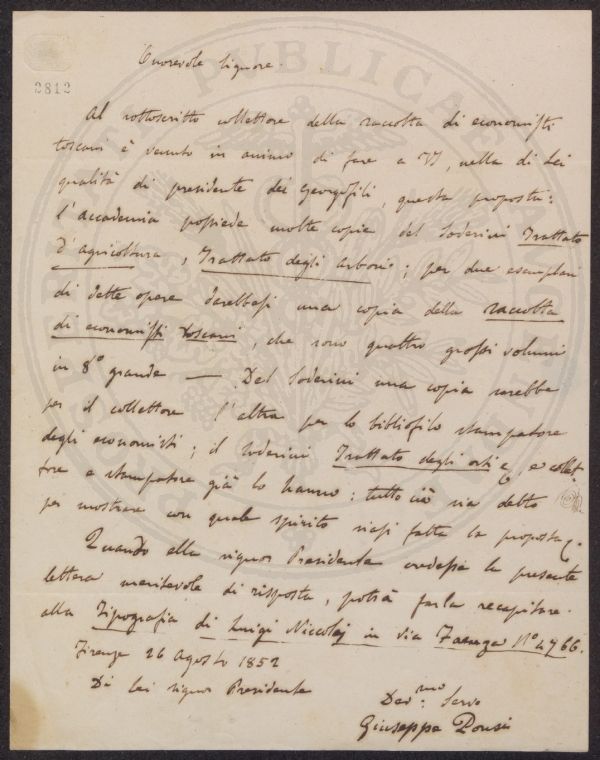 Onorevole Signore.
2812
Al sottoscritto collettore della raccolta di economisti
toscani è venuto in animo di fare a VS, nella di Lei
qualità di presidente dei Georgofili, questa proposta:
l'accademia possiede molte copie del Soderini Trattato
d'agricoltura, Trattato degli arbori; per due esemplari
di dette opere darebbesi una copia della raccolta
di economisti toscani, che sono quattro grossi volumi
in 8° grande — Del Soderini una copia sarebbe
per il collettore l'altra per lo bibliofilo stampatore
degli economisti; il Soderini Trattato degli orti e collet
tore e stampatore già lo hanno: tutto ciò sia detto
per mostrare con quale spirito siasi fatta la proposta.
Quando ella signor Presidente credesse la presente
lettera meritevole di risposta, potrà farla recapitare
alla Tipografia di Luigi Niccolaj in via Faenza N° 4766.
Firenze 26 Agosto 1852
Di Lei signor Presidente
Dev.mo Servo
Giuseppe Ponsi